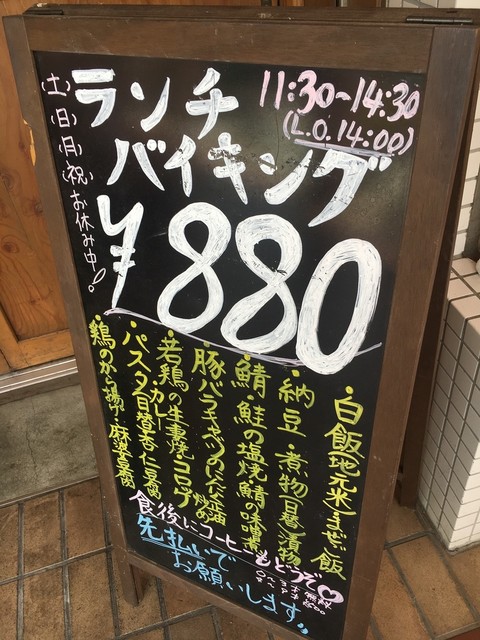 ランチ
バイキング
11:30~14:30
(L.O.14:00)
(土)(日)(月)(祝)お休み中!
¥880
・白飯(地元米)・まぜご飯
・納豆・煮物・漬物
・鯖・鮭の塩焼・鯖の味噌煮
・豚バラキャベツの
・若鶏の生姜焼・コロッケ
・カレー
・パスタ・杏仁豆腐
・鶏のから揚げ・麻婆豆腐
食後にコーヒーもどうぞ♡
先払いで
お願いします